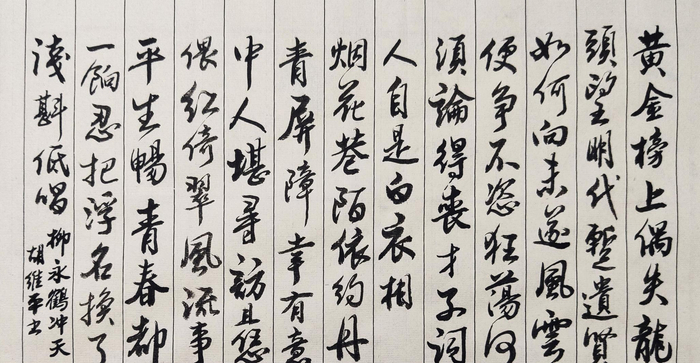 黃金榜上偶失龍
頭望明代暫遺賢
如何向未遂風雲
便争不恣狂蕩何
須論得喪才子詞
人自是白衣相
烟花巷陌依約丹
青屏障幸有意
中人堪尋訪且恁
偎红倚翠風流事
平生暢青春都
一餉忍把浮名换了
淺斟低唱 柳永鶴冲天
胡維平书